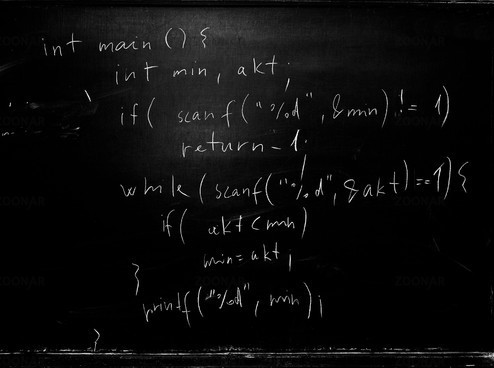 int main () {
int min, akt;
if( scanf("%d", &min) != 1)
return -1;
while (scanf("%d", &akt) == 1) {
if( akt < min)
min = akt;
}
printf("%d", min);
}